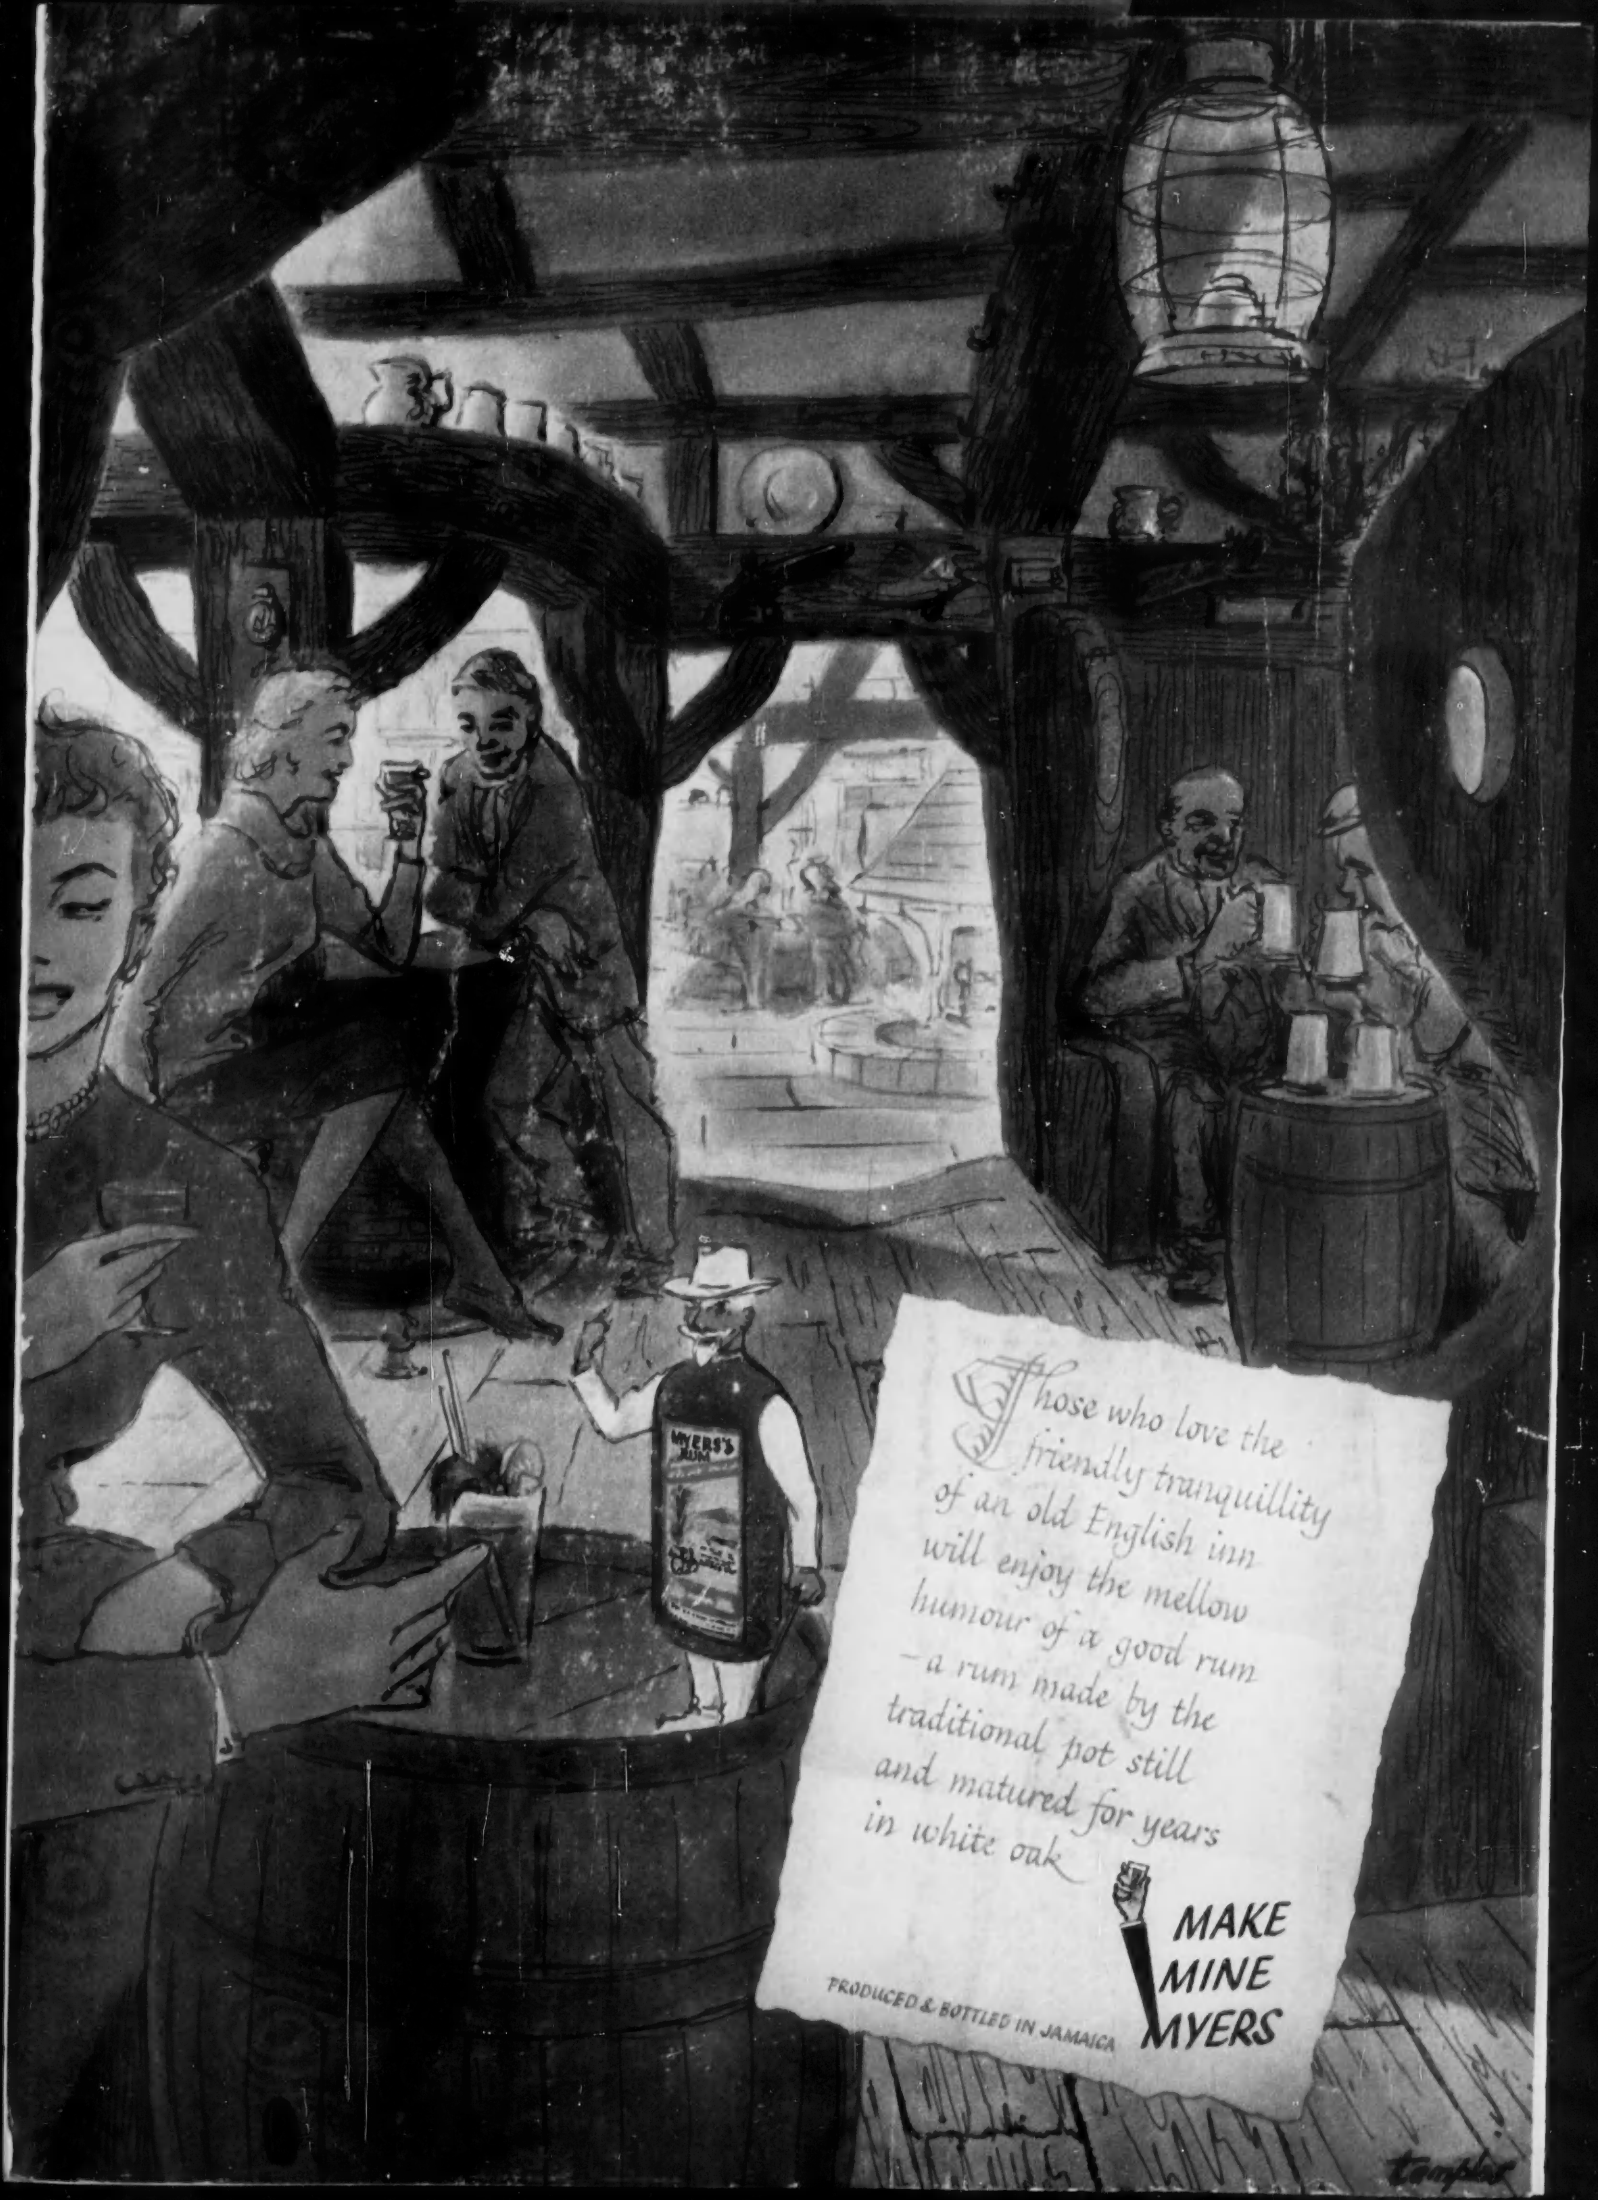 MYERS'S
RUM
Those who love the
friendly tranquillity
of an old English inn
will enjoy the mellow
humour of a good rum
– a rum made by the
traditional pot still
and matured for years
in white oak
MAKE
MINE
MYERS
PRODUCED & BOTTLED IN JAMAICA